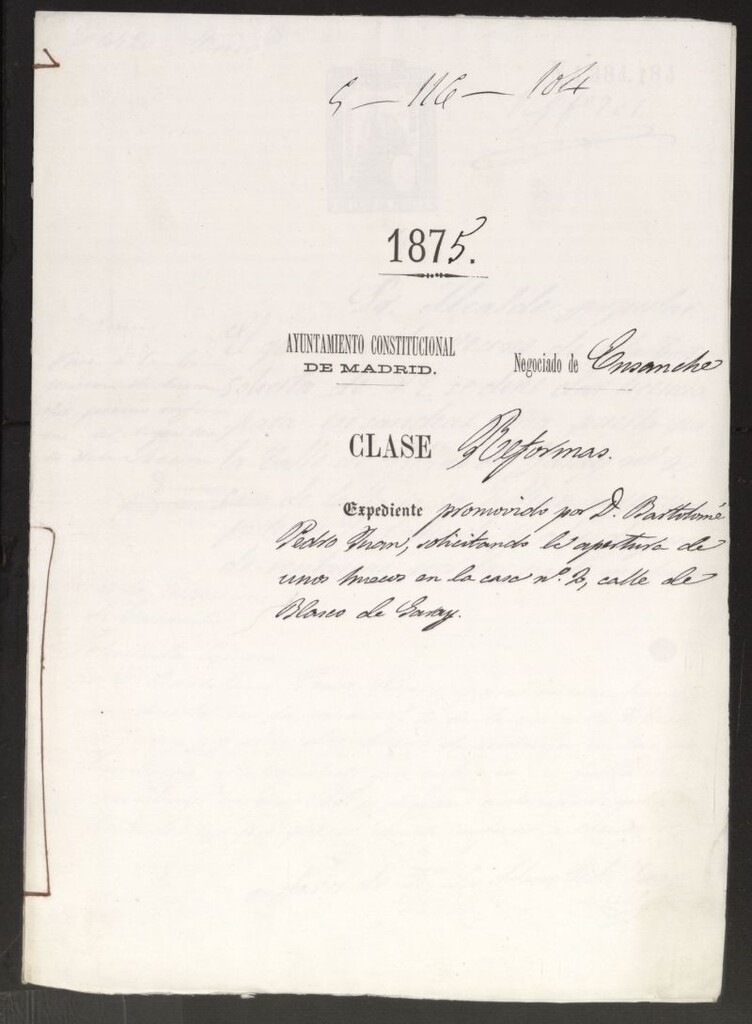 5 — 116 — 104
1875.
AYUNTAMIENTO CONSTITUCIONAL
DE MADRID.
Negociado de Ensanche
CLASE Reformas.
Expediente promovido por D. Bartolomé
Pedro Juan, solicitando la apertura de
unos huecos en la casa nº. 2, calle de
Blasco de Garay.